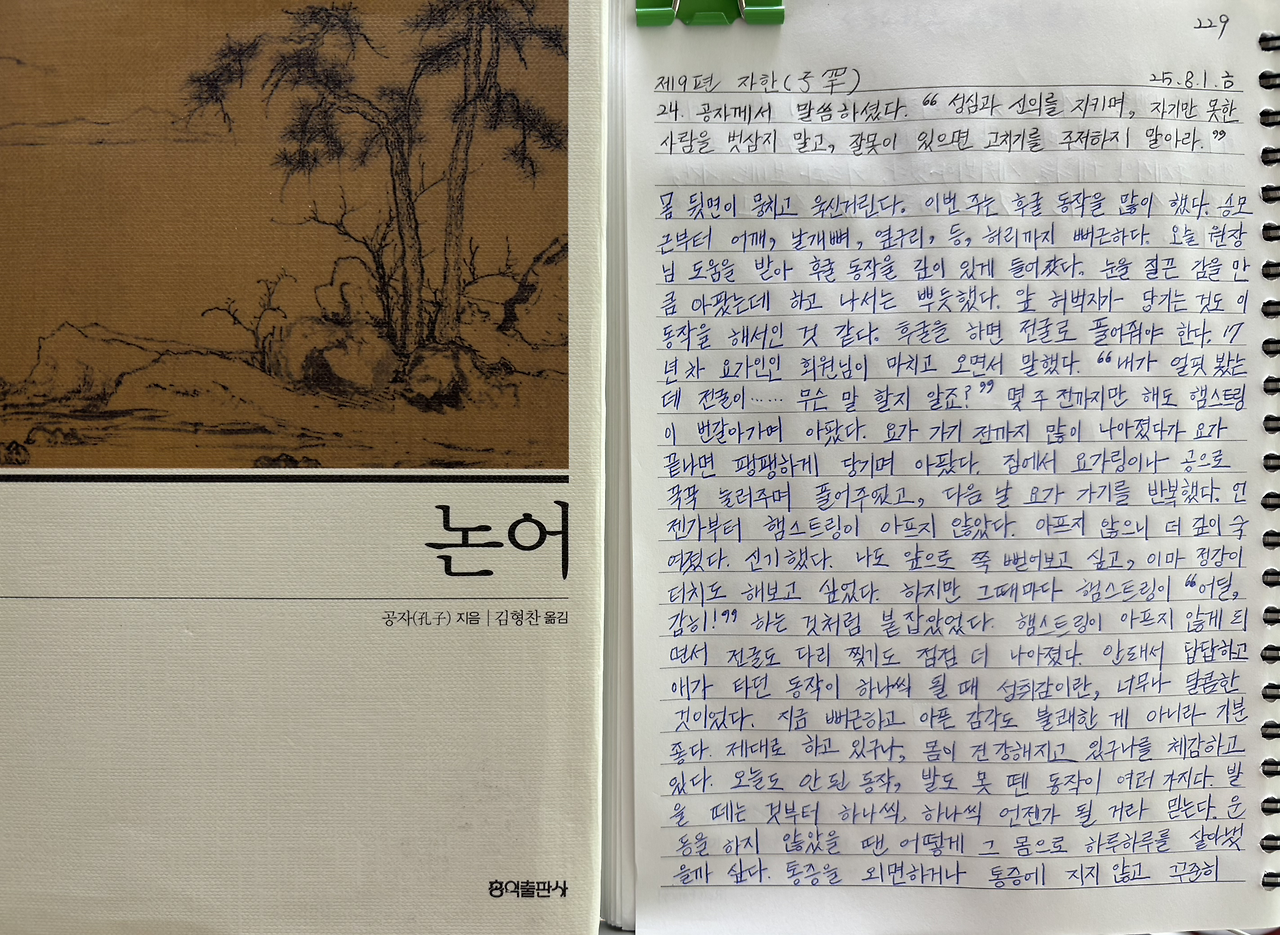 논어
공자(孔子) 지음 | 김형찬 옮김
홍익출판사
229
제9편 자한(子罕) 25.8.1.금
24. 공자께서 말씀하셨다. “성심과 신의를 지키며, 자기만 못한
사람을 벗삼지 말고, 잘못이 있으면 고치기를 주저하지 말아라.”
몸 뒷면이 뭉치고 욱신거린다. 이번 주는 후굴 동작을 많이 했다. 승모
근부터 어깨, 날개뼈, 옆구리, 등, 허리까지 뻐근하다. 오늘 원장
님 도움을 받아 후굴 동작을 깊이 있게 들어갔다. 눈을 질끈 감을 만
큼 아팠는데 하고 나서는 뿌듯했다. 앞 허벅지가 당기는 것도 이
동작을 해서인 것 같다. 후굴을 하면 전굴로 풀어줘야 한다. 17
년차 요가인인 회원님이 마치고 오면서 말했다. “내가 얼핏 봤는
데 전굴이…… 무슨 말 할지 알죠?” 몇 주 전까지만 해도 햄스트링
이 번갈아가며 아팠다. 요가 가기 전까지 많이 나아졌다가 요가
끝나면 팽팽하게 당기며 아팠다. 집에서 요가링이나 공으로
꾹꾹 눌러주며 풀어주었고, 다음 날 요가 가기를 반복했다. 언
젠가부터 햄스트링이 아프지 않았다. 아프지 않으니 더 깊이 숙
여졌다. 신기했다. 나도 앞으로 쭉 뻗어보고 싶고, 이마 정강이
터치도 해보고 싶었다. 하지만 그때마다 햄스트링이 “어딜,
감히!” 하는 것처럼 붙잡았었다. 햄스트링이 아프지 않게 되
면서 전굴도 다리 찢기도 점점 더 나아졌다. 안돼서 답답하고
애가 타던 동작이 하나씩 될 때 성취감이란, 너무나 달콤한
것이었다. 지금 뻐근하고 아픈 감각도 불쾌한 게 아니라 기분
좋다. 제대로 하고 있구나, 몸이 건강해지고 있구나를 체감하고
있다. 오늘도 안 된 동작, 발도 못 뗀 동작이 여러 가지다. 발
을 떼는 것부터 하나씩, 하나씩 언젠가 될 거라 믿는다. 운
동을 하지 않았을 땐 어떻게 그 몸으로 하루하루를 살아냈
을까 싶다. 통증을 외면하거나 통증에 지지 않고 꾸준히